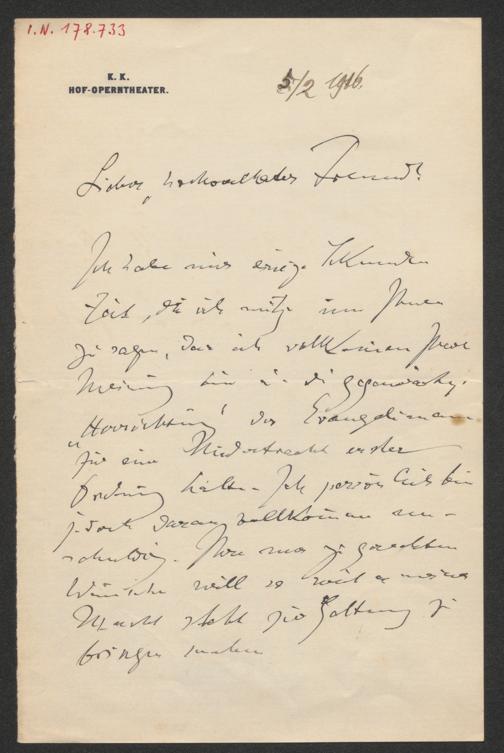 I.N. 178.733
K. K.
HOF-OPERNTHEATER.
5/2 1916.
Lieber, hochverehrter Freund!
Ich habe nur einige Sekunden
Zeit, die ich nütze um Ihnen
zu sagen, dass ich vollkommen Ihrer
Meinung bin u. die gegenwärtige
"Herrichtung" des Evangelimann
für eine Niedertracht erster
Ordnung halte. Ich persönlich bin
jedoch daran vollkommen un-
schuldig. Ihre nur zu gerechten
Wünsche will so weit es meine
Macht steht zur Geltung zu
bringen suchen